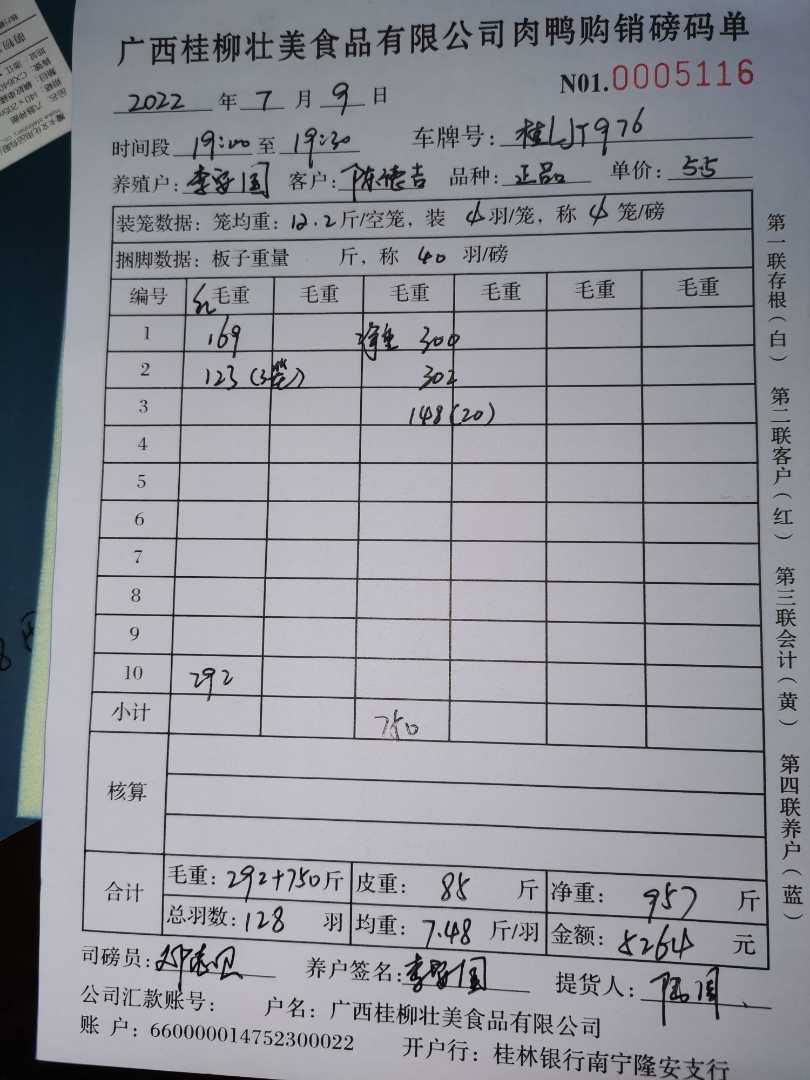 广西桂柳壮美食品有限公司肉鸭购销磅码单
N01.0005116
2022 年 7 月 9 日
时间段 19:00 至 19:30 车牌号: 桂LJT976
养殖户: 李 国 客户: 陈德吉 品种: 正品 单价: 5.5
装笼数据: 笼均重: 12.2 斤/空笼, 装 4 羽/笼, 称 4 笼/磅
捆脚数据: 板子重量 斤, 称 40 羽/磅
编号 毛重 毛重 毛重 毛重 毛重 毛重
1 169 净重 300
2 123 (3笼) 302
3 148 (20)
4
5
6
7
8
9
10 292
小计 750
核算
合计 毛重: 292+750 斤 皮重: 85 斤 净重: 957 斤
总羽数: 128 羽 均重: 7.48 斤/羽 金额: 5264 元
司磅员: 养户签名: 李 国 提货人:
公司汇款账号: 户名: 广西桂柳壮美食品有限公司
账 户: 660000014752300022 开户行: 桂林银行南宁隆安支行
第一联存根(白) 第二联客户(红) 第三联会计(黄) 第四联养户(蓝)